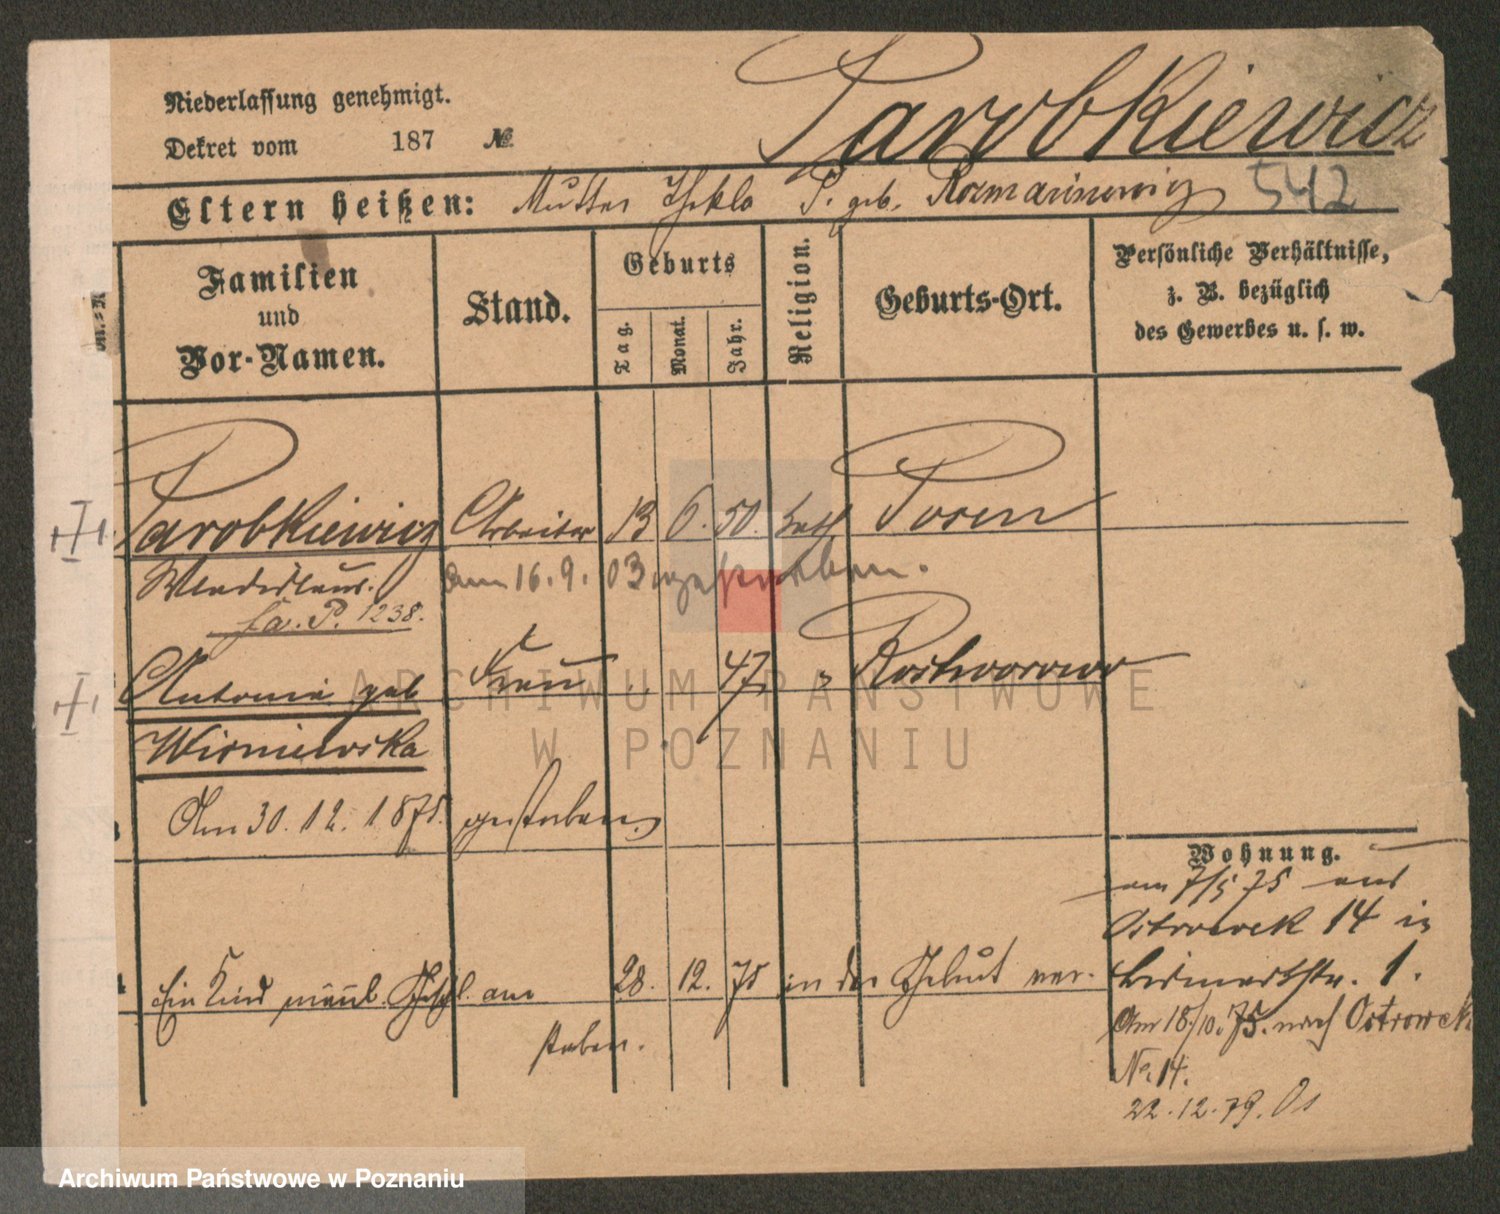 Parobkiewicz
Niederlassung genehmigt.
Dekret vom 187 №
Eltern heißen: Mutter Thekla P. geb. Rozmarinowicz 542
Familien und Vor-Namen.
Stand.
Geburts
Tag.
Monat.
Jahr.
Religion.
Geburts-Ort.
Persönliche Verhältnisse,
z. B. bezüglich
des Gewerbes u. s. w.
Parobkiewicz Arbeiter 13 6. 50. kath Posen
Wladislaus. am 16. 9. 03 gestorben.
fa. P. 1238.
Antonie geb Frau 47. " Rostworowo
Wisniewska
Am 30. 12. 1875. gestorben.
Wohnung.
am 7/5 75 aus
Ostrowek 14 in
Bismarckstr. 1.
Ein Kind männl. Geschl. am 28. 12. 75 in der Geburt ver-
storben.
Am 18./10. 75. nach Ostrowek
No. 14.
22. 12. 79. Os
ARCHIWUM PAŃSTWOWE
W POZNANIU
Archiwum Państwowe w Poznaniu